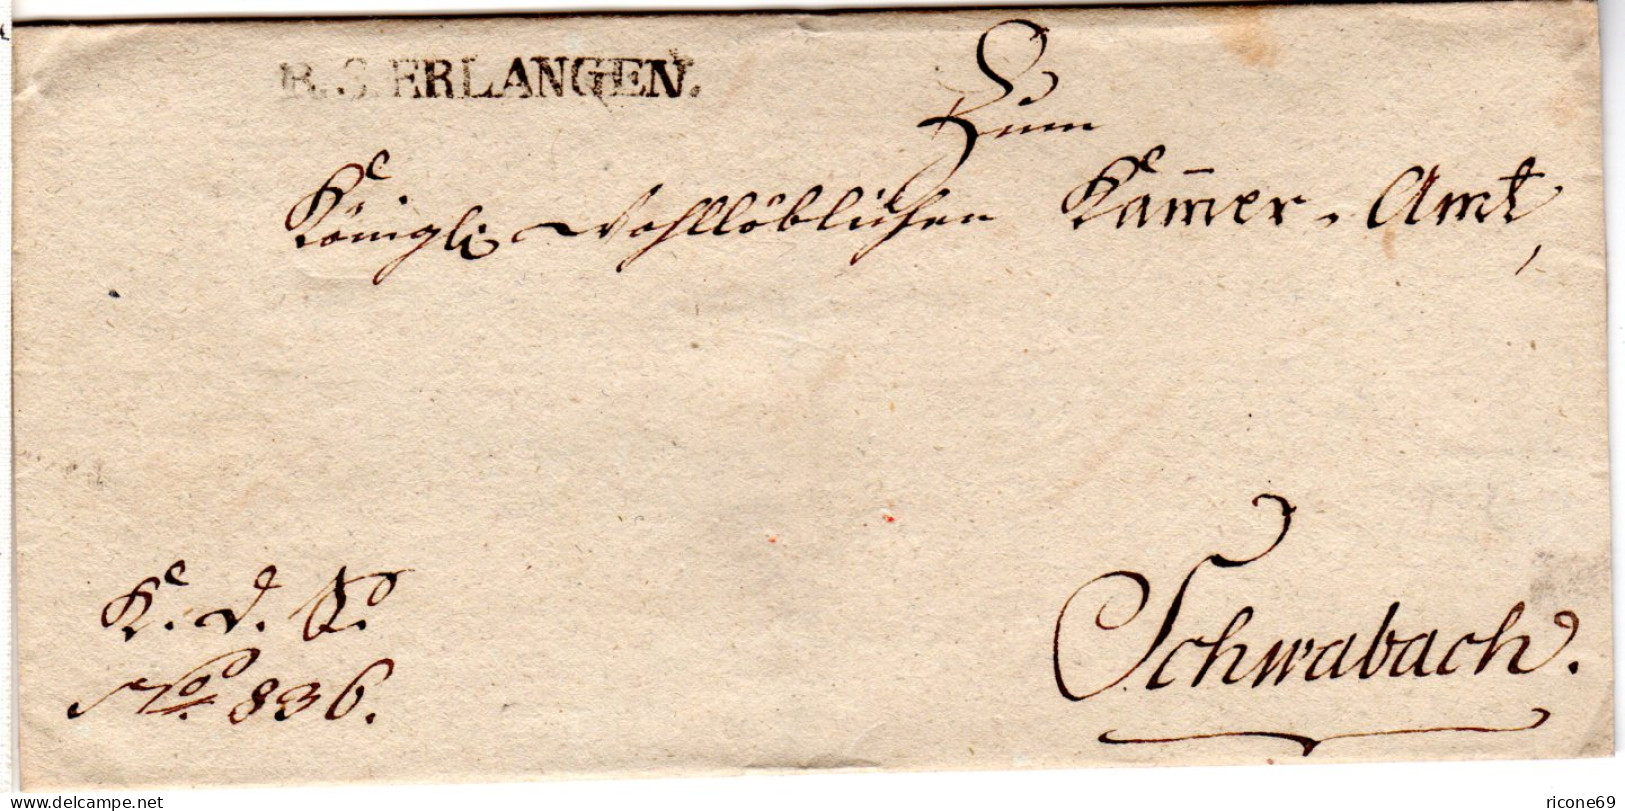 R.3.ERLANGEN.
Zum
Königl. Wohllöblichen Kam̅er-Amt,
Schwabach.
K. d. S.
No. 836.
www.delcampe.net
ricone69